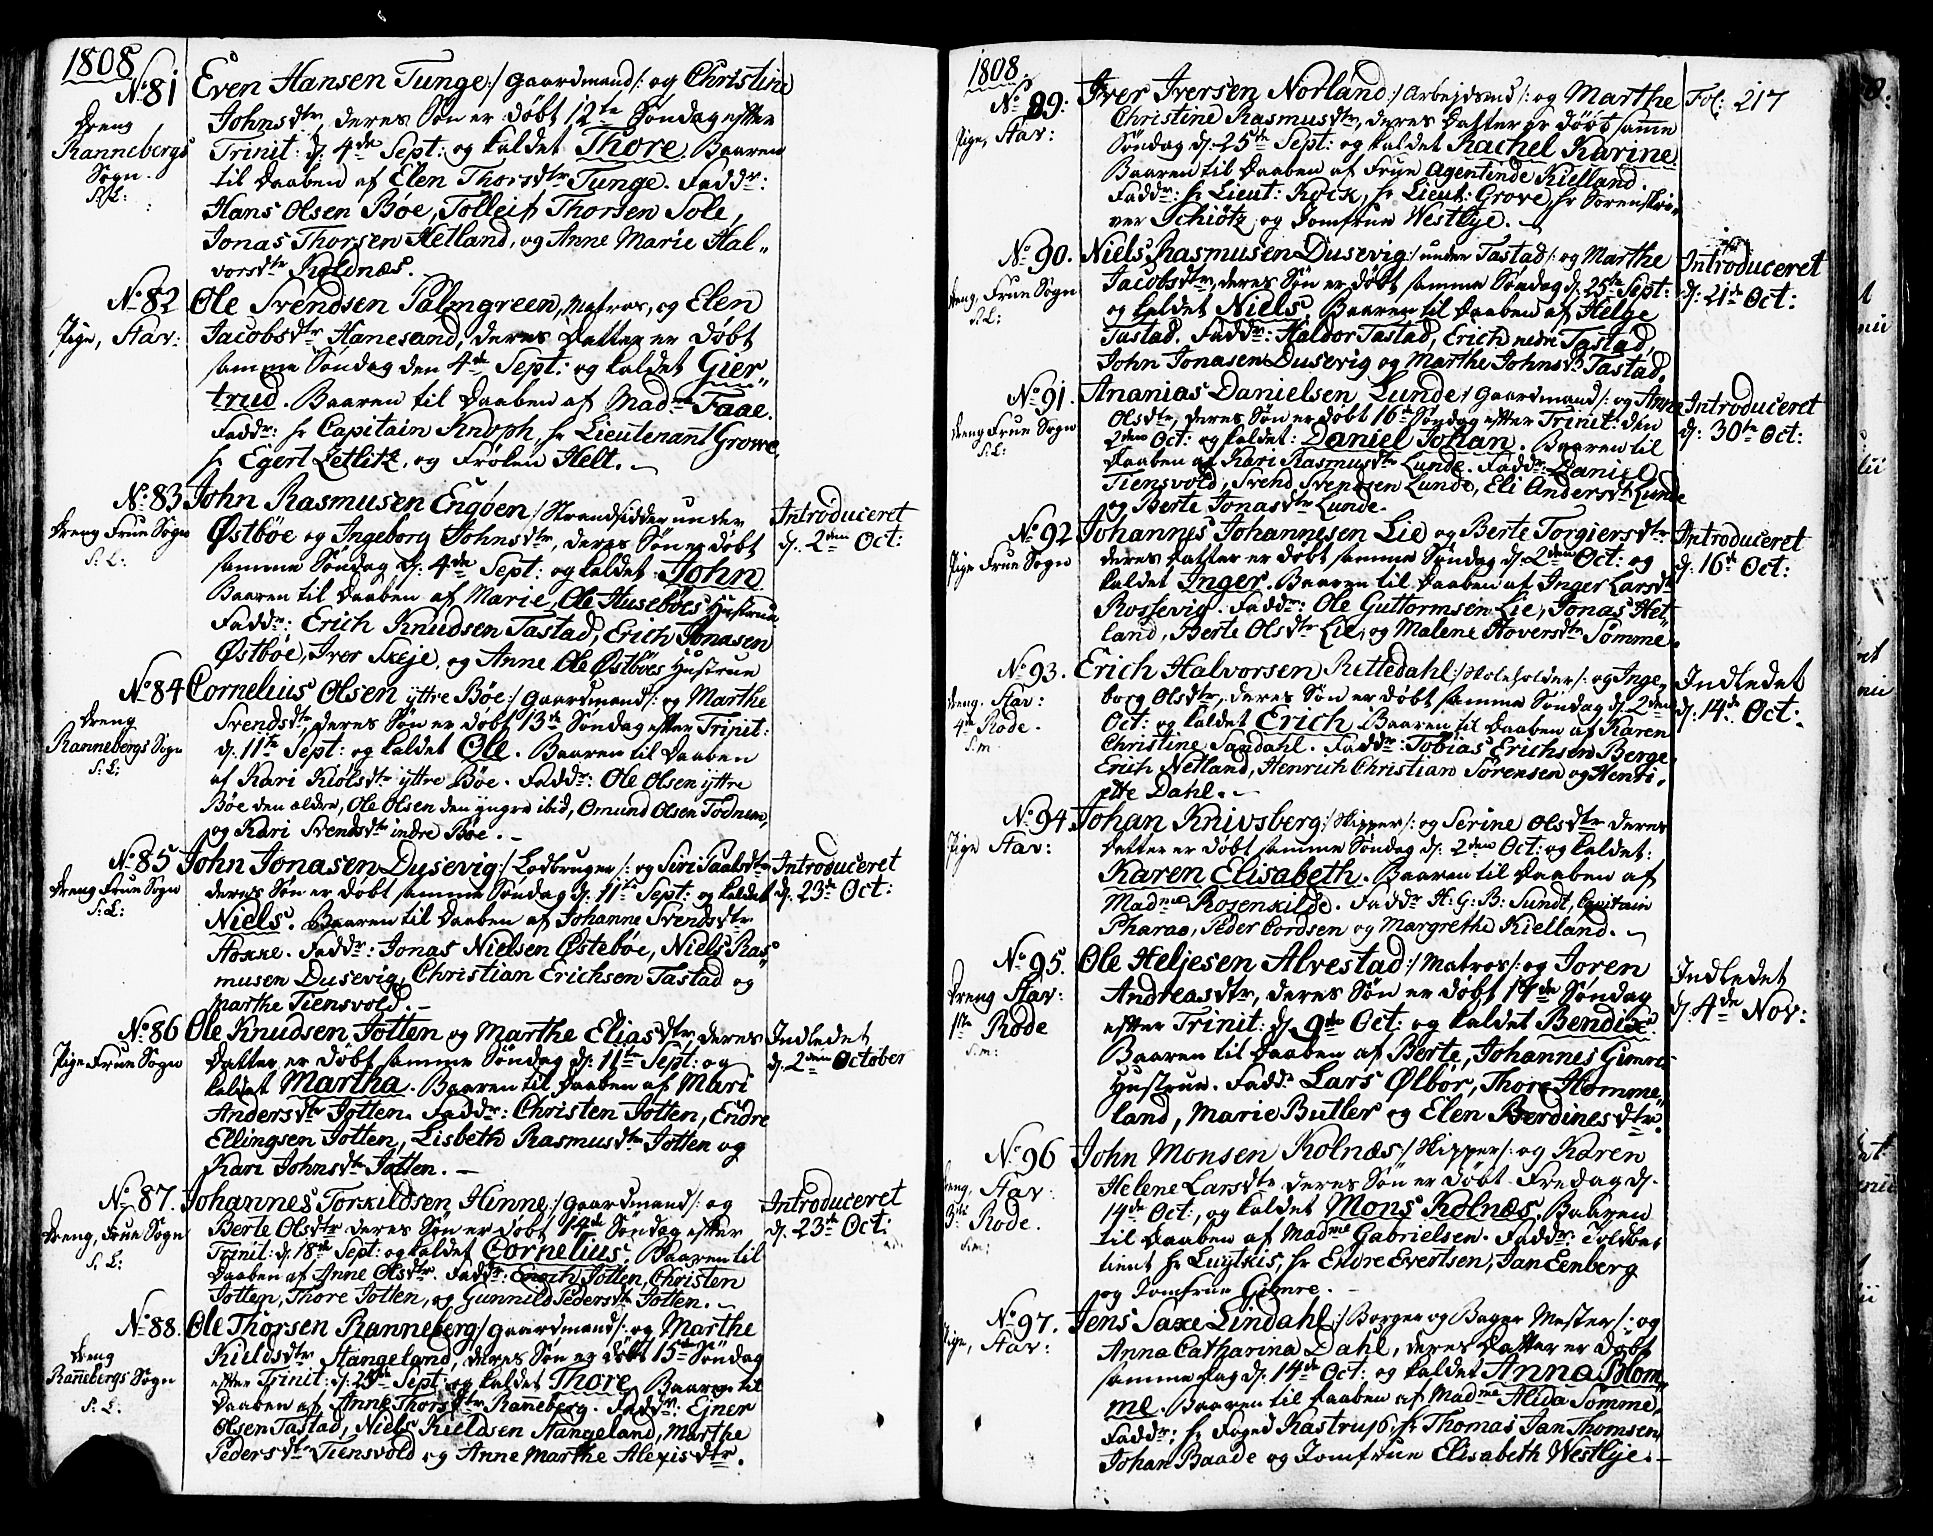 1808
No 81 Even Hansen Tunge /: Gaardmand :/ og Christine
Dreng Johnsdtr, deres Søn er døbt 12te Søndag efter
Rannebergs Trinit: d: 4de Sept: og kaldet Thore. Baaren
Sogn. til Daaben af Elen Thorsdtr Tunge. Faddr:
S: L: Hans Olsen Bøe, Tolleif Thorsen Sole,
Jonas Thorsen Hetland, og Anne Marie Hal-
vorsdtr Koldnæs.
No 82 Ole Svendsen Palmgreen, Matros, og Elen
Pige, Stav: Jacobsdtr Hanesand, deres Datter er døbt
samme Søndag den 4de Sept: og kaldet Gier-
trud. Baaren til Daaben af Madme Faae.
Faddr: hr Capitain Knoph, hr Lieutenant Growe,
hr Egert Zetlitz, og Frølen Helt.
No 83 John Rasmusen Engøen /: Strandsidder under
Dreng Frue Sogn Østbøe og Ingeborg Johnsdtr, deres Søn er døbt
S: L: samme Søndag d: 4de Sept: og kaldet John
Baaren til Daaben af Marie, Ole Husebøes Hustrue.
Faddr: Erich Knudsen Tastad, Erich Jonasen
Østbøe, Iver Skeje, og Anne Ole Østbøes Hustrue
Introduceret
d: 2den Oct:
No 84 Cornelius Olsen yttre Bøe /: Gaardmand :/ og Marthe
Dreng Svendsdtr, deres Søn er døbt 13de Søndag efter Trinit:
Rannebergs Sogn d: 11te Sept: og kaldet Ole. Baaren til Daaben
S: L: af Kari Kiølsdtr yttre Bøe. Faddr: Ole Olsen yttre
Bøe den ældre, Ole Olsen den yngre ibid, Omund Olsen Todnem,
og Kari Svendsdtr indre Bøe.
No 85 John Jonasen Dusevig /: Lodbruger :/ og Siri Paalsdtr
Dreng Frue Sogn deres Søn er døbt samme Søndag d: 11te Sept: og kaldet
S: L: Niels. Baaren til Daaben af Johanne Svendsdtr
Stokke. Faddr: Jonas Nielsen Østebøe, Niels Ras-
musen Dusevig, Christian Erichsen Tastad og
Marthe Tiensvold.
Introduceret
d: 23de Oct:
No 86 Ole Knudsen Jotten og Marthe Eliasdtr, deres
Pige Frue Sogn Datter er døbt samme Søndag d: 11te Sept: og
kaldet Martha. Baaren til Daaben af Mari
Andersdtr Jotten. Faddr: Christen Jotten, Endre
Ellingsen Jotten, Lisbeth Rasmusdtr Jotten og
Kari Johnsdtr Jotten.
Indledet
d: 2den October
No 87. Johannes Torkildsen Hinne /: Gaardmand :/ og
Dreng, Frue Sogn Berte Olsdtr deres Søn er døbt 14de Søndag efter
S: L: Trinit: d: 18de Sept: og kaldet Cornelius. Baaren til
Daaben af Anne Olsdtr. Faddr: Enoch Jotten, Christen
Jotten, Thore Jotten, og Gunnild Pedersdtr Jotten.
Introduceret
d: 23de Oct:
No 88. Ole Thorsen Ranneberg /: Gaardmand :/ og Marthe
Dreng Kieldsdtr Stangeland, deres Søn er døbt 15de Søndag
Rannebergs Sogn efter Trinit: d: 25de Sept: og kaldet Thore. Baaren til
S: L: Daaben af Anne Thorsdtr Raneberg. Faddr: Ejner
Olsen Tastad, Niels Kieldsen Stangeland, Marthe
Pedersdtr Tiensvold og Anne Marthe Alexisdtr.
1808.
Fol: 217
No 89: Iver Iversen Norland /: Arbejdsmd :/ og Marthe
Pige, Stav: Christine Rasmusdtr, deres Datter er døbt samme
Søndag d: 25de Sept: og kaldet Rachel Karine.
Baaren til Daaben af Frue Agentinde Kielland.
Faddr: hr Lieut: Kock, hr Lieut: Grove, hr Sorenskri-
ver Schiøtz og Jomfrue Westlye.
No 90. Niels Rasmusen Dusevig /: under Tastad :/ og Marthe
Dreng, Frue Sogn Jacobsdtr, deres Søn er døbt samme Søndag d: 25de Sept:
S: L: og kaldet Niels. Baaren til Daaben af Helge
Tastad. Faddr: Haldor Tastad, Erich nedre Tastad,
John Jonasen Dusevig og Marthe Johnsdtr Tastad.
Introduceret
d: 21de Oct:
No 91. Ananias Danielsen Lunde /: Gaardmand :/ og Anne
Dreng Frue Sogn Olsdtr, deres Søn er døbt 16de Søndag efter Trinit: den
S: L: 2den Oct: og kaldet: Daniel Johan. Baaren til
Daaben af Kari Rasmusdtr Lunde. Faddr: Daniel
Tiensvold, Svend Svendsen Lunde, Eli Andersdtr Lunde
og Berte Jonasdtr Lunde.
Introduceret
d: 30te Oct:
No 92 Johannes Johannesen Lie og Berte Torgiersdtr
Pige Frue Sogn deres Datter er døbt samme Søndag d: 2den Oct: og
kaldet Inger. Baaren til Daaben af Inger Larsdtr
Rossevig. Faddr: Ole Guttormsen Lie, Jonas Het-
land, Berte Olsdtr Lie, og Malene Hoversdtr Somme.
Introduceret
d: 16de Oct:
No 93. Erich Halvorsen Retledahl /: Huseholder :/ og Inge-
Dreng. Stav: borg Olsdtr, deres Søn er døbt samme Søndag d: 2den
4de Rode. Oct: og kaldet Erich. Baaren til Daaben af Karen
S: m: Christine Sandahl. Faddr: Tobias Erichsen Berge,
Erich Netland, Henrich Christian Sørensen og Henri-
ette Dahl.
Indledet
d: 14de Oct:
No 94 Johan Knivsberg /: Skipper :/ og Serine Olsdtr deres
Pige Stav: Datter er døbt samme Søndag d: 2den Oct: og kaldet:
Karen Elisabeth. Baaren til Daaben af
Madme Rosenkilde. Faddr H: G: B: Sundt, Capitain
Pharao, Peder Cordsen og Margrethe Kielland.
No 95. Ole Heljesen Alvestad /: Matros :/ og Joren
Dreng Stav: Andreasdtr, deres Søn er døbt 17de Søndag
1ste Rode efter Trinit: d: 9de Oct: og kaldet Bendix.
S: m: Baaren til Daaben af Berte, Johannes Gimre
Hustrue. Faddr Lars Ølbør, Thore Homme-
land, Marie Butler og Elen Berdinesdtr.
Indledet
d: 4de Nov:
No 96 John Monsen Kolnæs /: Skipper :/ og Karen
Dreng, Stav: Helene Larsdtr deres Søn er døbt Fredag d:
3de Rode. 14de Oct:, og kaldet Mons Kolnæs. Baaren
S: m: til Daaben af Madme Gabrielsen. Faddr: Toldbe-
tient hr Luytkis, hr Endre Evertsen, Jan Eenberg
og Jomfrue Gimre.
No 97. Jens Saxe Lindahl /: Borger og Bager Mester :/ og
Pige, Stav: Anna Catharina Dahl, deres Datter er døbt
samme Dag d: 14de Oct: og kaldet Anna Blom-
me. Baaren til Daaben af Madme Alida Somme,
Faddr: hr Foged Kastrup, hr Thomas Jan Thomsen,
Johan Baade og Jomfrue Elisabeth Westlye.